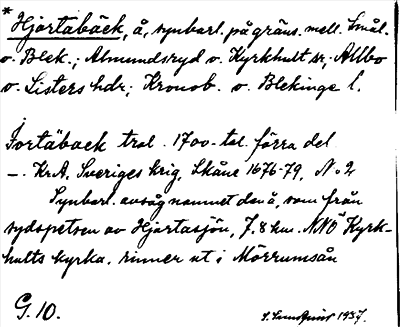 * Hjortabäck, å, synbarl. på gräns. mell. Smål.
o. Blek.; Almundsryd o. Kyrkhult sr; Allbo
o. Listers hdr; Kronob. o. Blekinge l.
Jortäback trol. 1700-tal. förra del
–. Kr.A. Sveriges krig, Skåne 1676-79, N. 2
Synbarl. avsåg namnet den å, som från
sydspetsen av Hjortasjön, 7.8 km. NNO Kyrk-
hults kyrka, rinner ut i Mörrumsån
G. 10.
1937.